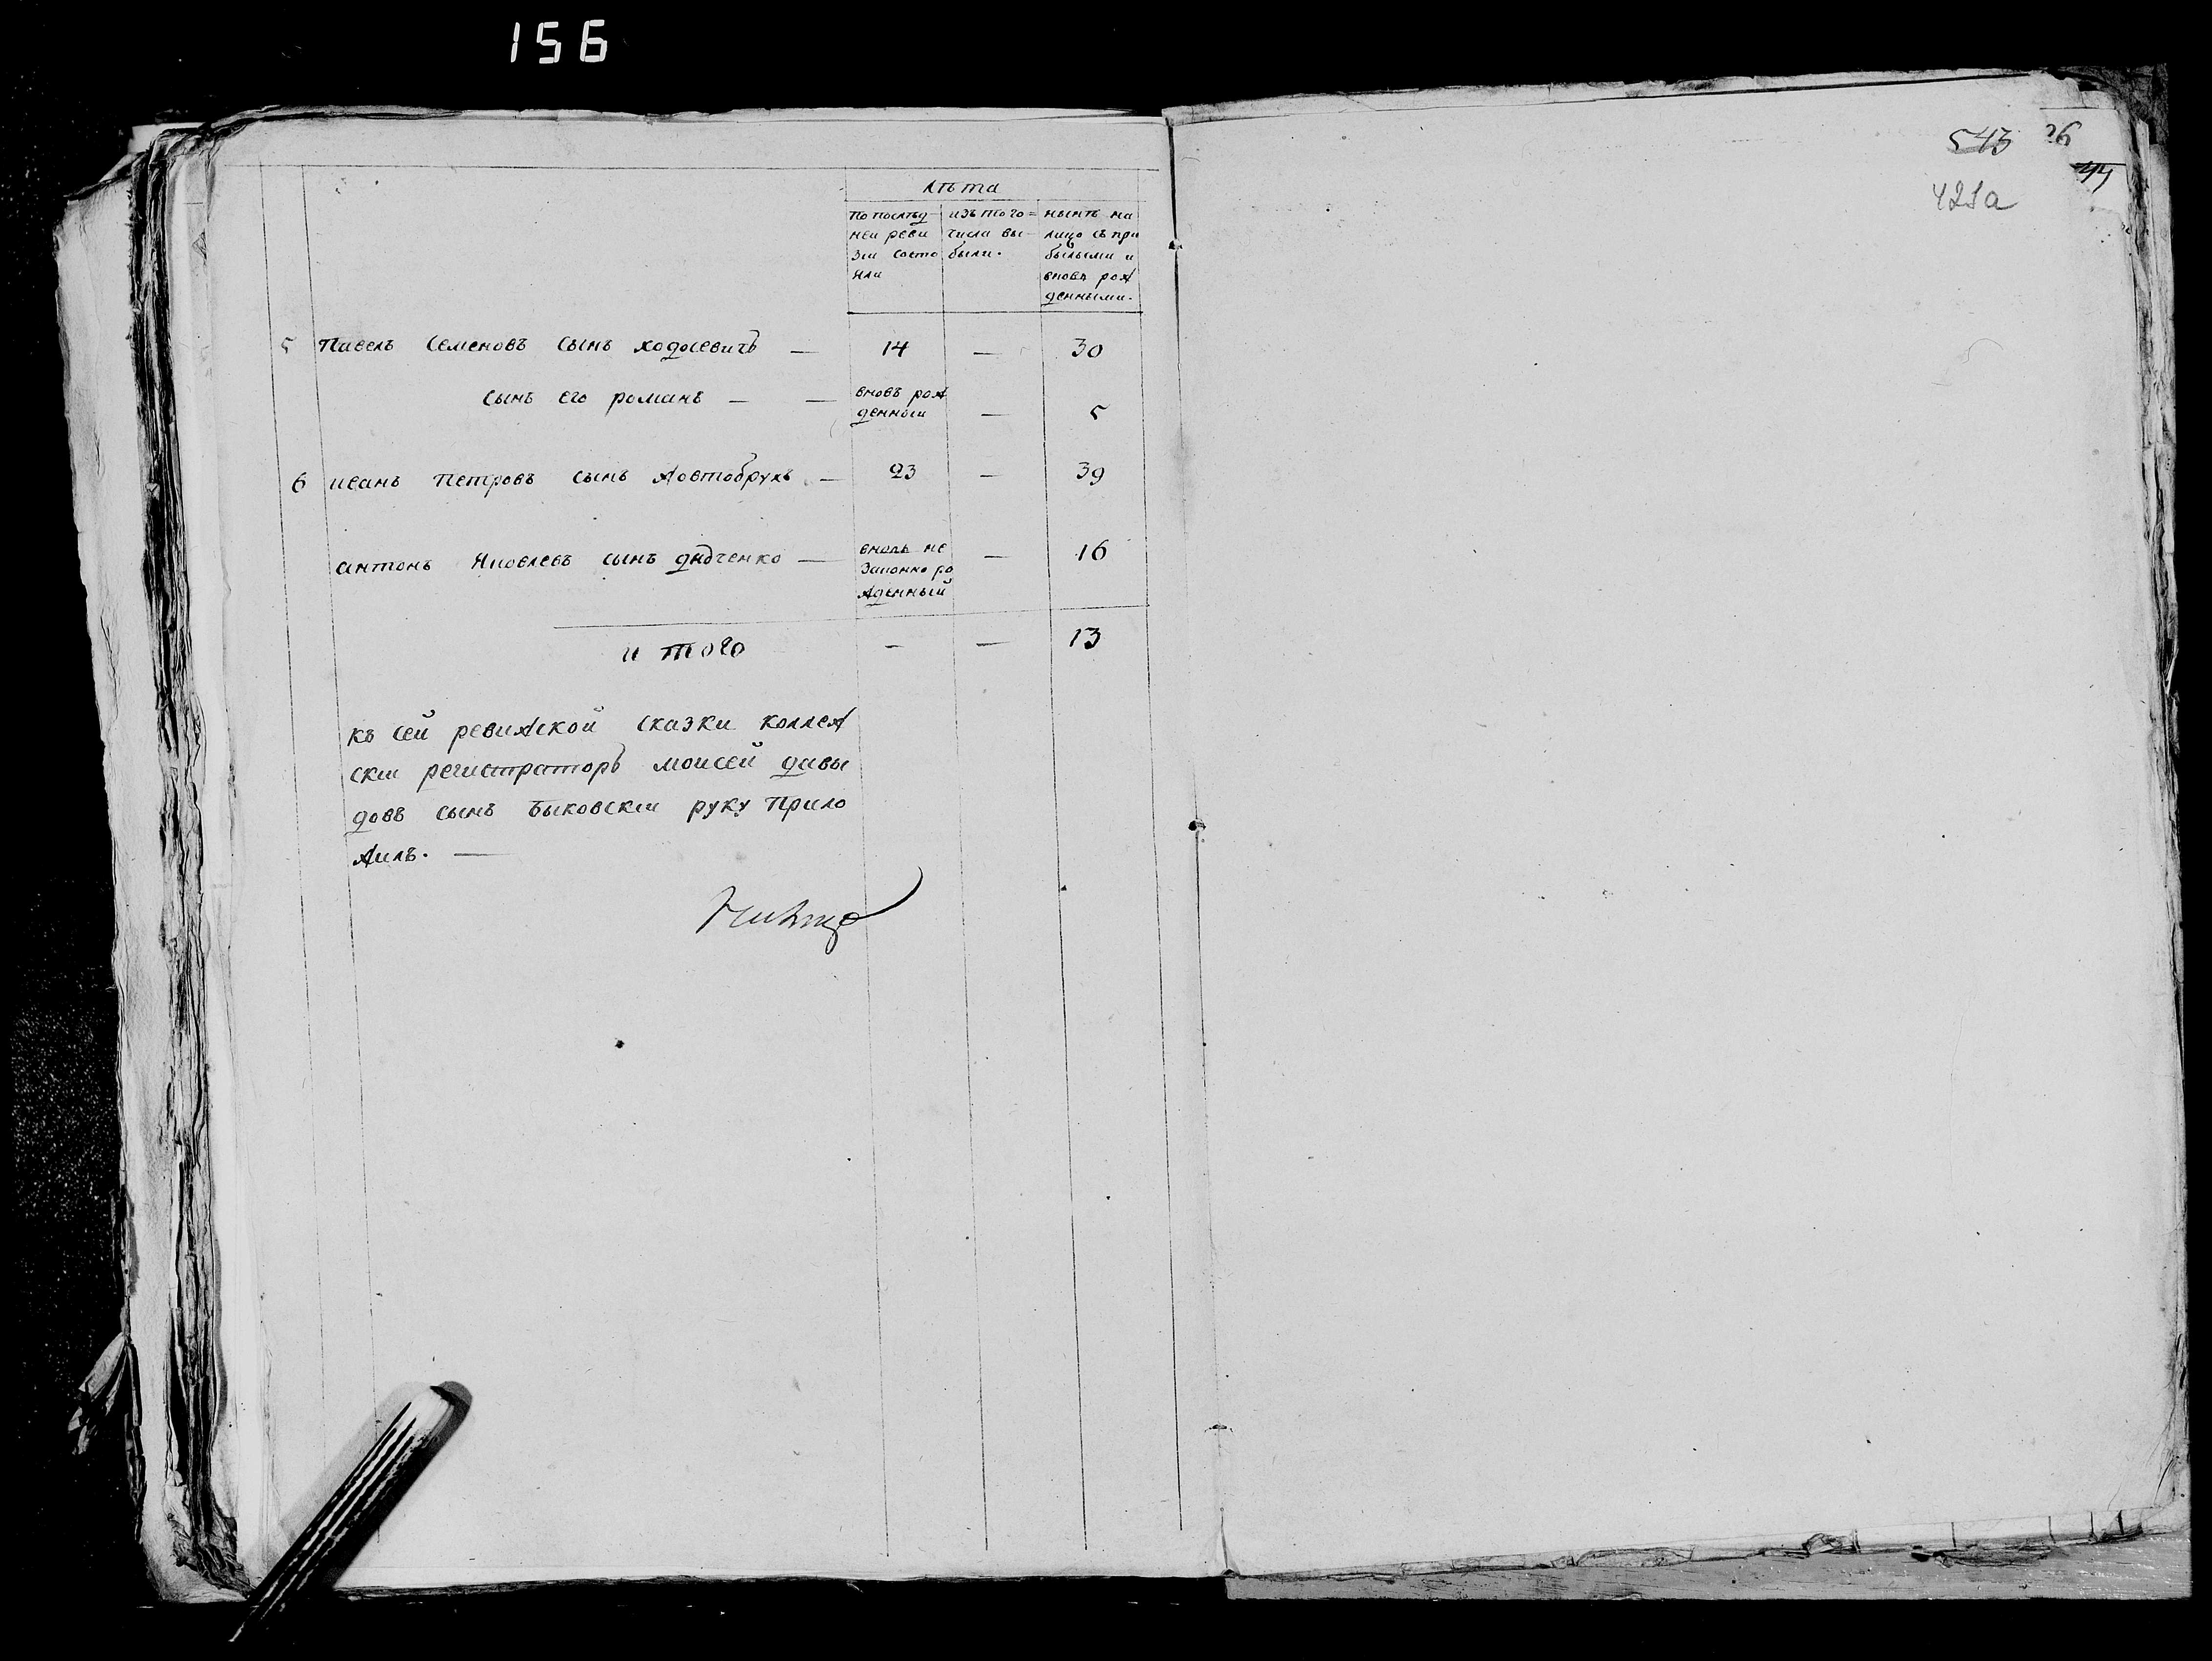 156
543 26
44
421а
лѣта
по послѣд-
ней реви
зіи состо
яли
изъ того=
числа вы-
были.
нынѣ на
лицо съ при
былыми и
вновь рож
денными.
5 Павелъ Семеновъ сынъ ходосевичъ — 14 — 30
сынъ его романъ — — вновь рож
денной — 5
6 иванъ Петровъ сынъ жовтобрухъ — 23 — 39
антонъ Яковлевъ сынъ дядченко — вновь не
законно ро
жденный — 16
и того — — 13
къ сей ревижской сказки коллеж
скій регистраторъ моисей давы
довъ сынъ Быковскій руку Прило
жилъ. —